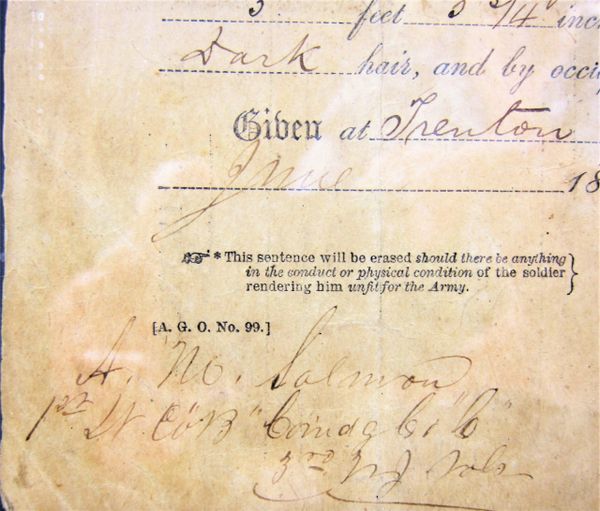 5 feet 5 3/4 inc
Dark hair, and by occup
Given at Trenton
June 18
* This sentence will be erased should there be anything
in the conduct or physical condition of the soldier
rendering him unfit for the Army.
[A. G. O. No. 99.]
A. M. Salmon
1st Lt Co "B" Comdg Co "C"
3rd NJ Vols